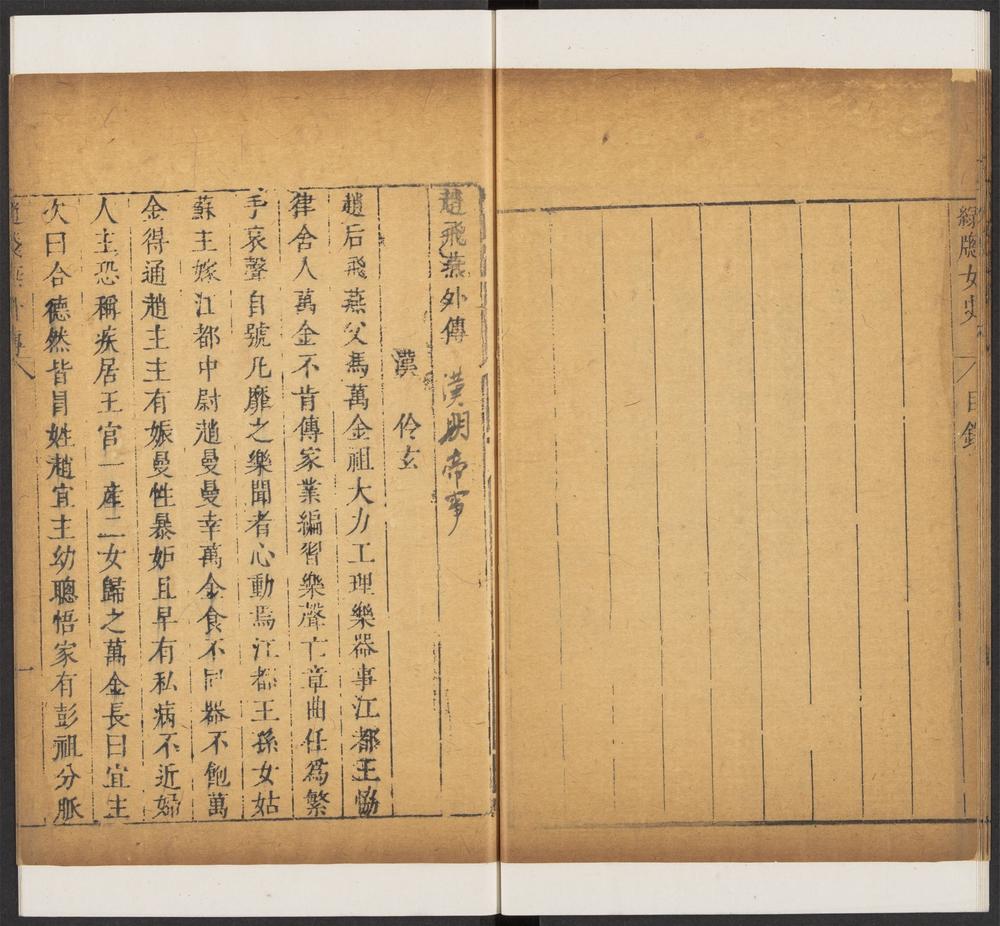 綠牕女史
目錄
趙飛燕外傳 漢朝帝事
漢 伶玄
趙后飛燕父馮萬金祖大力工理樂器事江都王協
律舍人萬金不肯傳家業編習樂聲亡章曲任爲繁
手哀聲自號凡靡之樂聞者心動焉江都王孫女姑
蘇主嫁江都中尉趙曼曼幸萬金食不同器不飽萬
金得通趙主主有娠曼性暴妒且早有私病不近婦
人主恐稱疾居王宫一產二女歸之萬金長曰宜主
次曰合德然皆冒姓趙宜主幼聰悟家有彭祖分脈
趙飛燕外傳
一